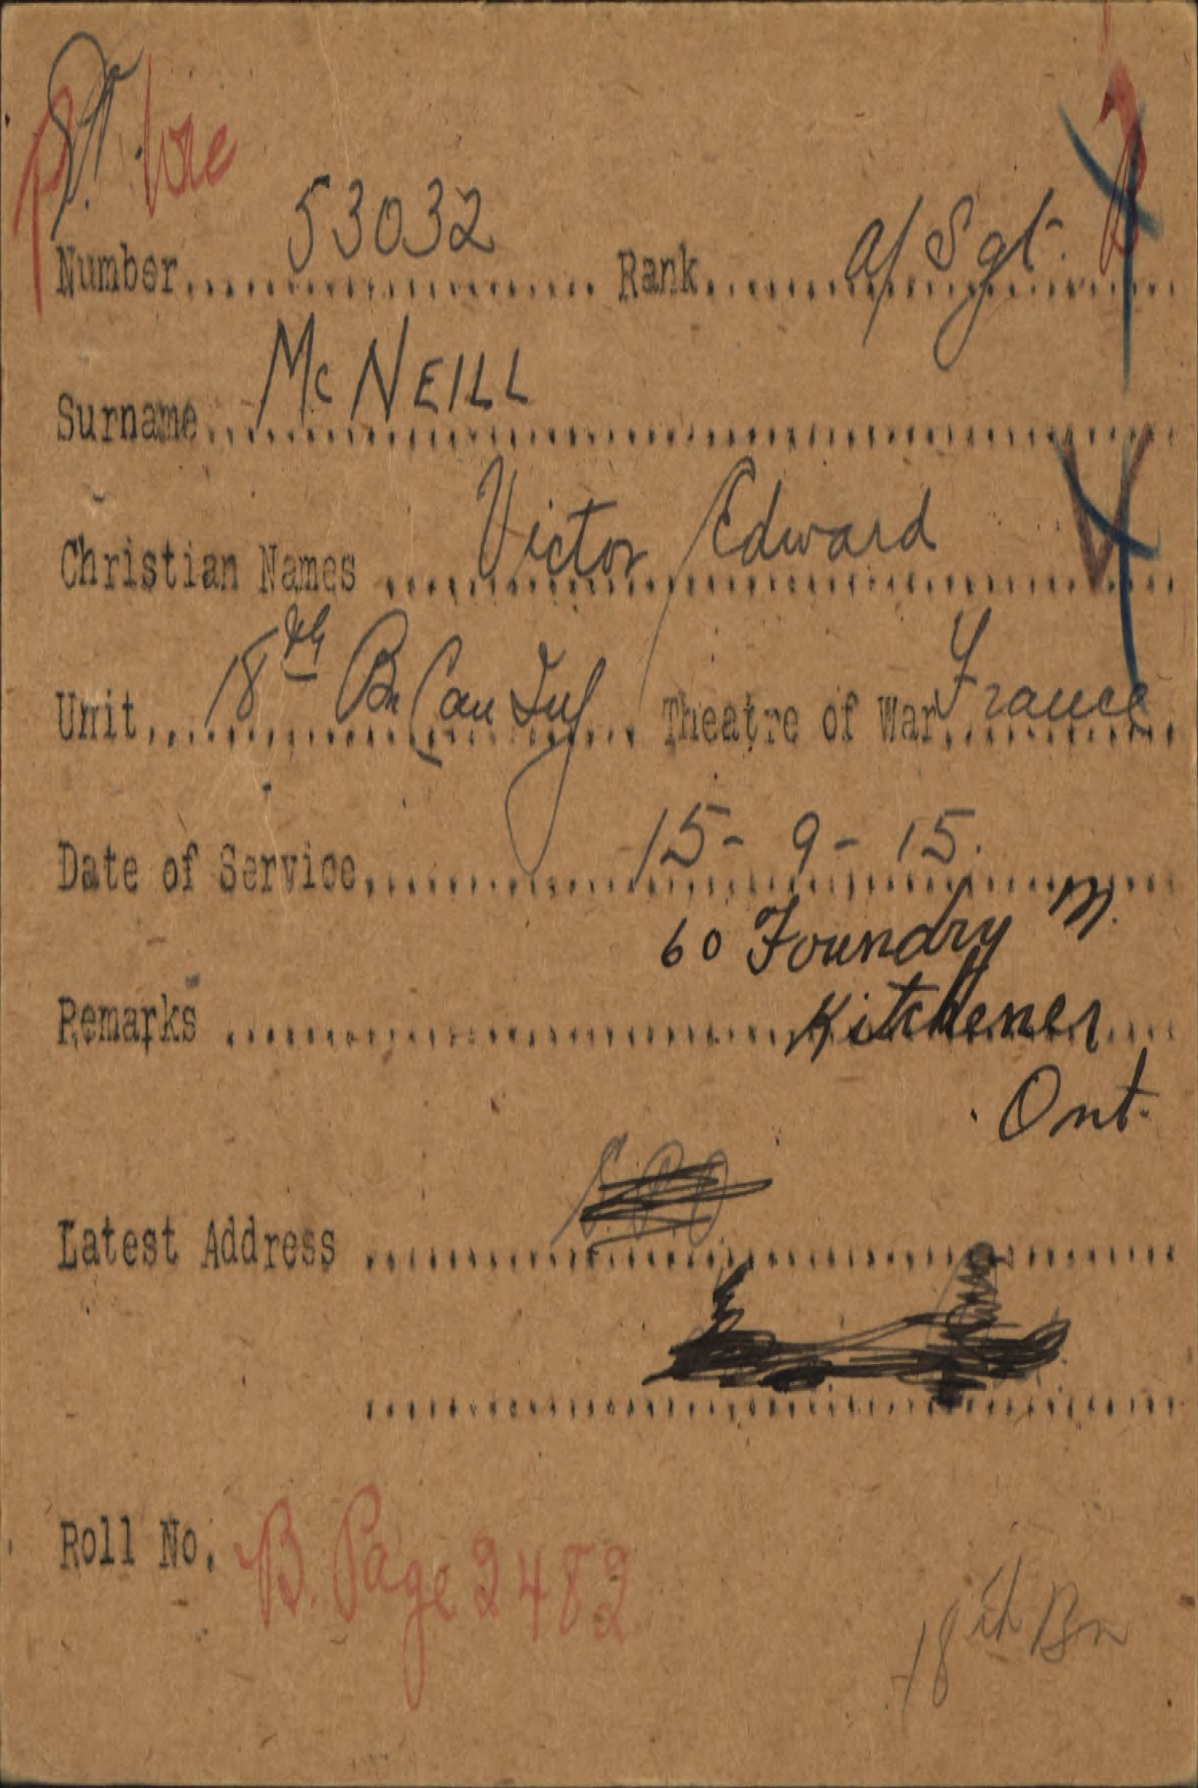 Number 53032 Rank a/Sgt.
Surname Mc NEILL
Christian Names Victor Edward
Unit 18th Bn Can Inf Theatre of War France
Date of Service 15-9-15.
60 Foundry
Remarks Kitchener
Ont.
Latest Address
Roll No. B. Page 2482
18th Bn